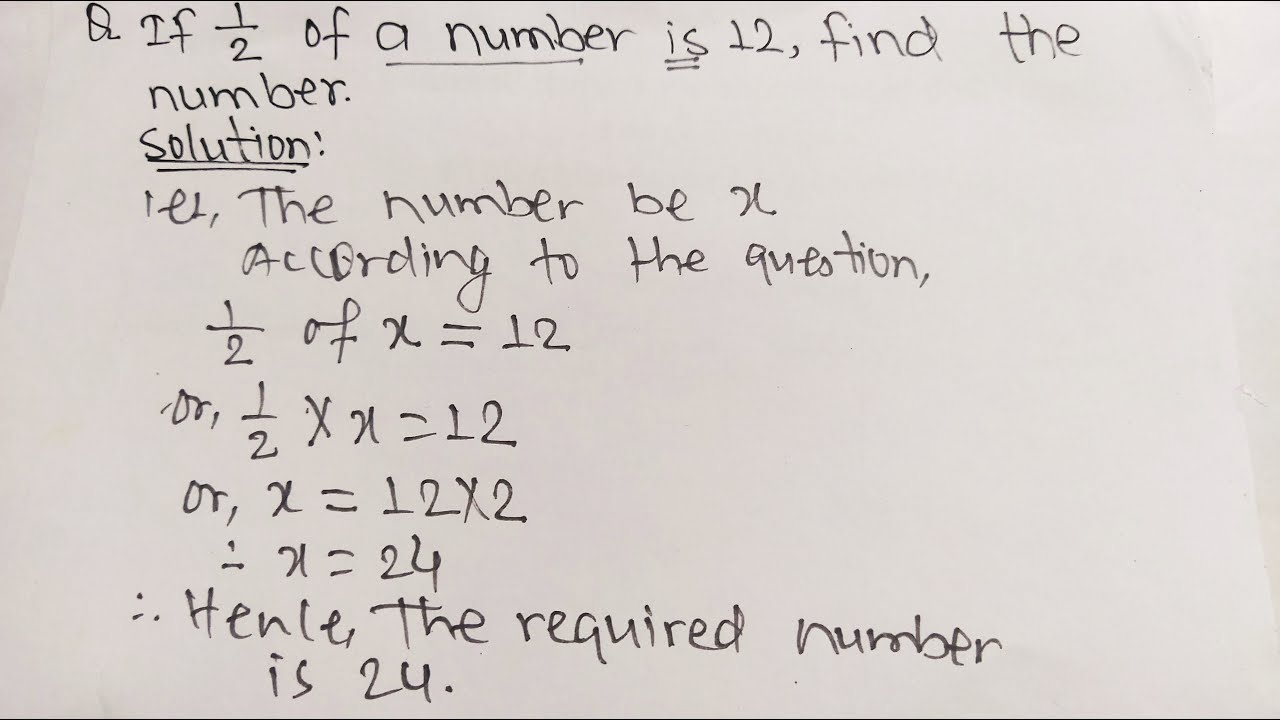 Q. If 1/2 of a number is 12, find the
number.
Solution:
let, The number be x
According to the question,
1/2 of x = 12
or, 1/2 × x = 12
or, x = 12×2
∴ x = 24
∴ Hence, The required number
is 24.